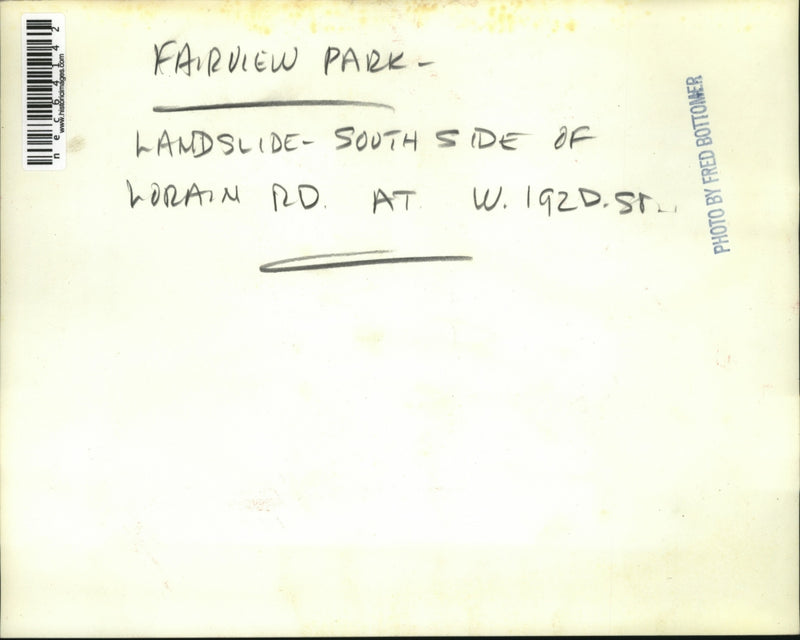 FAIRVIEW PARK-
LANDSLIDE- SOUTH SIDE OF
LORAIN RD. AT W. 192D. ST...
PHOTO BY FRED BOTTOMER
nec64142
www.historicimages.com